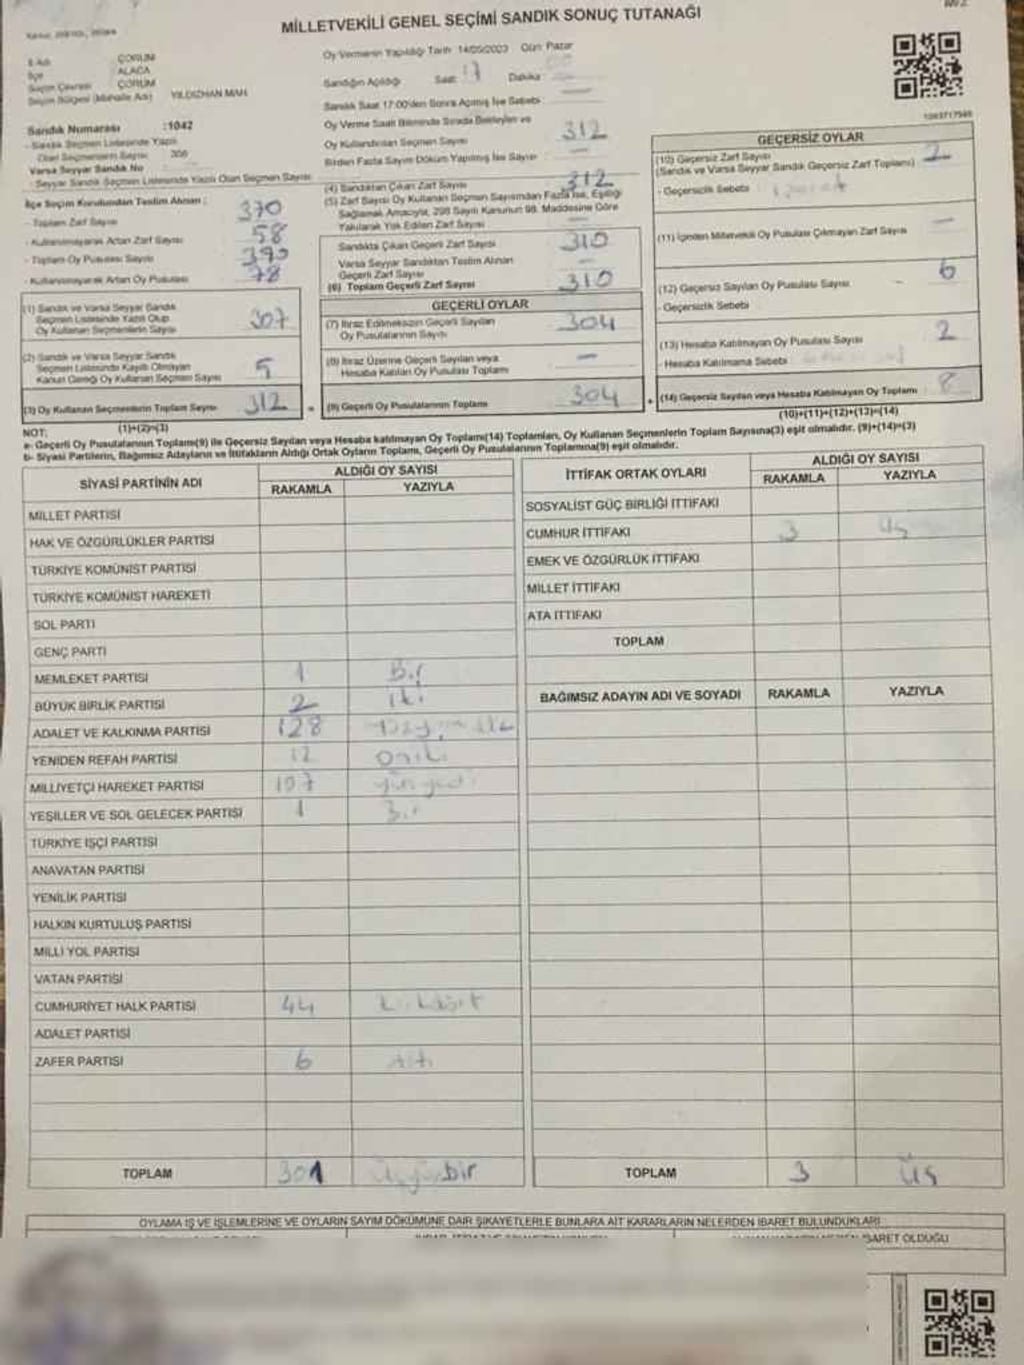 MİLLETVEKİLİ GENEL SEÇİMİ SANDIK SONUÇ TUTANAĞI
İl Adı ÇORUM
İlçe ALACA
Seçim Çevresi ÇORUM
Seçim Bölgesi (Mahalle Adı) YILDIZHAN MAH.
Sandık Numarası :1042
- Sandık Seçmen Listesinde Yazılı
Olan Seçmenlerin Sayısı
Varsa Seyyar Sandık No
- Seyyar Sandık Seçmen Listesinde Yazılı Olan Seçmen Sayısı
İlçe Seçim Kurulundan Teslim Alınan :
- Toplam Zarf Sayısı 370
- Kullanılmayarak Artan Zarf Sayısı 58
- Toplam Oy Pusulası Sayısı 390
- Kullanılmayarak Artan Oy Pusulası 78
(1) Sandık ve Varsa Seyyar Sandık
Seçmen Listesinde Yazılı Olup
Oy Kullanan Seçmenlerin Sayısı 307
(2) Sandık ve Varsa Seyyar Sandık
Seçmen Listesinde Kayıtlı Olmayan
Kanun Gereği Oy Kullanan Seçmen Sayısı 5
(3) Oy Kullanan Seçmenlerin Toplam Sayısı 312 =
(1)+(2)=(3)
Oy Vermenin Yapıldığı Tarih 14/05/2023 Gün Pazar
Sandığın Açıldığı Saat 17 Dakika
Sandık Saat 17:00'den Sonra Açılmış İse Sebebi
Oy Verme Saati Bitiminde Sırada Bekleyen ve
Oy Kullandırılan Seçmen Sayısı 312
Birden Fazla Sayım Döküm Yapılmış İse Sayısı
(4) Sandıktan Çıkan Zarf Sayısı 312
(5) Zarf Sayısı Oy Kullanan Seçmen Sayısından Fazla İse, Eşitliği
Sağlamak Amacıyla, 298 Sayılı Kanunun 98. Maddesine Göre
Yakılarak Yok Edilen Zarf Sayısı
Sandıkta Çıkan Geçerli Zarf Sayısı 310
Varsa Seyyar Sandıktan Teslim Alınan
Geçerli Zarf Sayısı
(6) Toplam Geçerli Zarf Sayısı 310
GEÇERLİ OYLAR
(7) İtiraz Edilmeksizin Geçerli Sayılan
Oy Pusulalarının Sayısı 304
(8) İtiraz Üzerine Geçerli Sayılan veya
Hesaba Katılan Oy Pusulası Toplamı
(9) Geçerli Oy Pusulalarının Toplamı 304 +
GEÇERSİZ OYLAR
(10) Geçersiz Zarf Sayısı
(Sandık ve Varsa Seyyar Sandık Geçersiz Zarf Toplamı) 2
- Geçersizlik Sebebi
(11) İçinden Milletvekili Oy Pusulası Çıkmayan Zarf Sayısı
(12) Geçersiz Sayılan Oy Pusulası Sayısı 6
- Geçersizlik Sebebi
(13) Hesaba Katılmayan Oy Pusulası Sayısı 2
- Hesaba Katılmama Sebebi
(14) Geçersiz Sayılan veya Hesaba Katılmayan Oy Toplamı 8
(10)+(11)+(12)+(13)=(14)
NOT:
a- Geçerli Oy Pusulalarının Toplamı(9) ile Geçersiz Sayılan veya Hesaba katılmayan Oy Toplamı(14) Toplamları, Oy Kullanan Seçmenlerin Toplam Sayısına(3) eşit olmalıdır. (9)+(14)=(3)
b- Siyasi Partilerin, Bağımsız Adayların ve İttifakların Aldığı Ortak Oyların Toplamı, Geçerli Oy Pusulalarının Toplamına(9) eşit olmalıdır.
SİYASİ PARTİNİN ADI ALDIĞI OY SAYISI
RAKAMLA YAZIYLA
MİLLET PARTİSİ
HAK VE ÖZGÜRLÜKLER PARTİSİ
TÜRKİYE KOMÜNİST PARTİSİ
TÜRKİYE KOMÜNİST HAREKETİ
SOL PARTİ
GENÇ PARTİ
MEMLEKET PARTİSİ 1 Bir
BÜYÜK BİRLİK PARTİSİ 2 İki
ADALET VE KALKINMA PARTİSİ 128
YENİDEN REFAH PARTİSİ 12 Oniki
MİLLİYETÇİ HAREKET PARTİSİ 107 yüzyedi
YEŞİLLER VE SOL GELECEK PARTİSİ 1 Bir
TÜRKİYE İŞÇİ PARTİSİ
ANAVATAN PARTİSİ
YENİLİK PARTİSİ
HALKIN KURTULUŞ PARTİSİ
MİLLİ YOL PARTİSİ
VATAN PARTİSİ
CUMHURİYET HALK PARTİSİ 44 kırkdört
ADALET PARTİSİ
ZAFER PARTİSİ 6 Altı
TOPLAM 301 üçyüzbir
İTTİFAK ORTAK OYLARI ALDIĞI OY SAYISI
RAKAMLA YAZIYLA
SOSYALİST GÜÇ BİRLİĞİ İTTİFAKI
CUMHUR İTTİFAKI 3 Üç
EMEK VE ÖZGÜRLÜK İTTİFAKI
MİLLET İTTİFAKI
ATA İTTİFAKI
TOPLAM
BAĞIMSIZ ADAYIN ADI VE SOYADI RAKAMLA YAZIYLA
TOPLAM 3 Üç
OYLAMA İŞ VE İŞLEMLERİNE VE OYLARIN SAYIM DÖKÜMÜNE DAİR ŞİKAYETLERLE BUNLARA AİT KARARLARIN NELERDEN İBARET BULUNDUKLARI
İBARET OLDUĞU